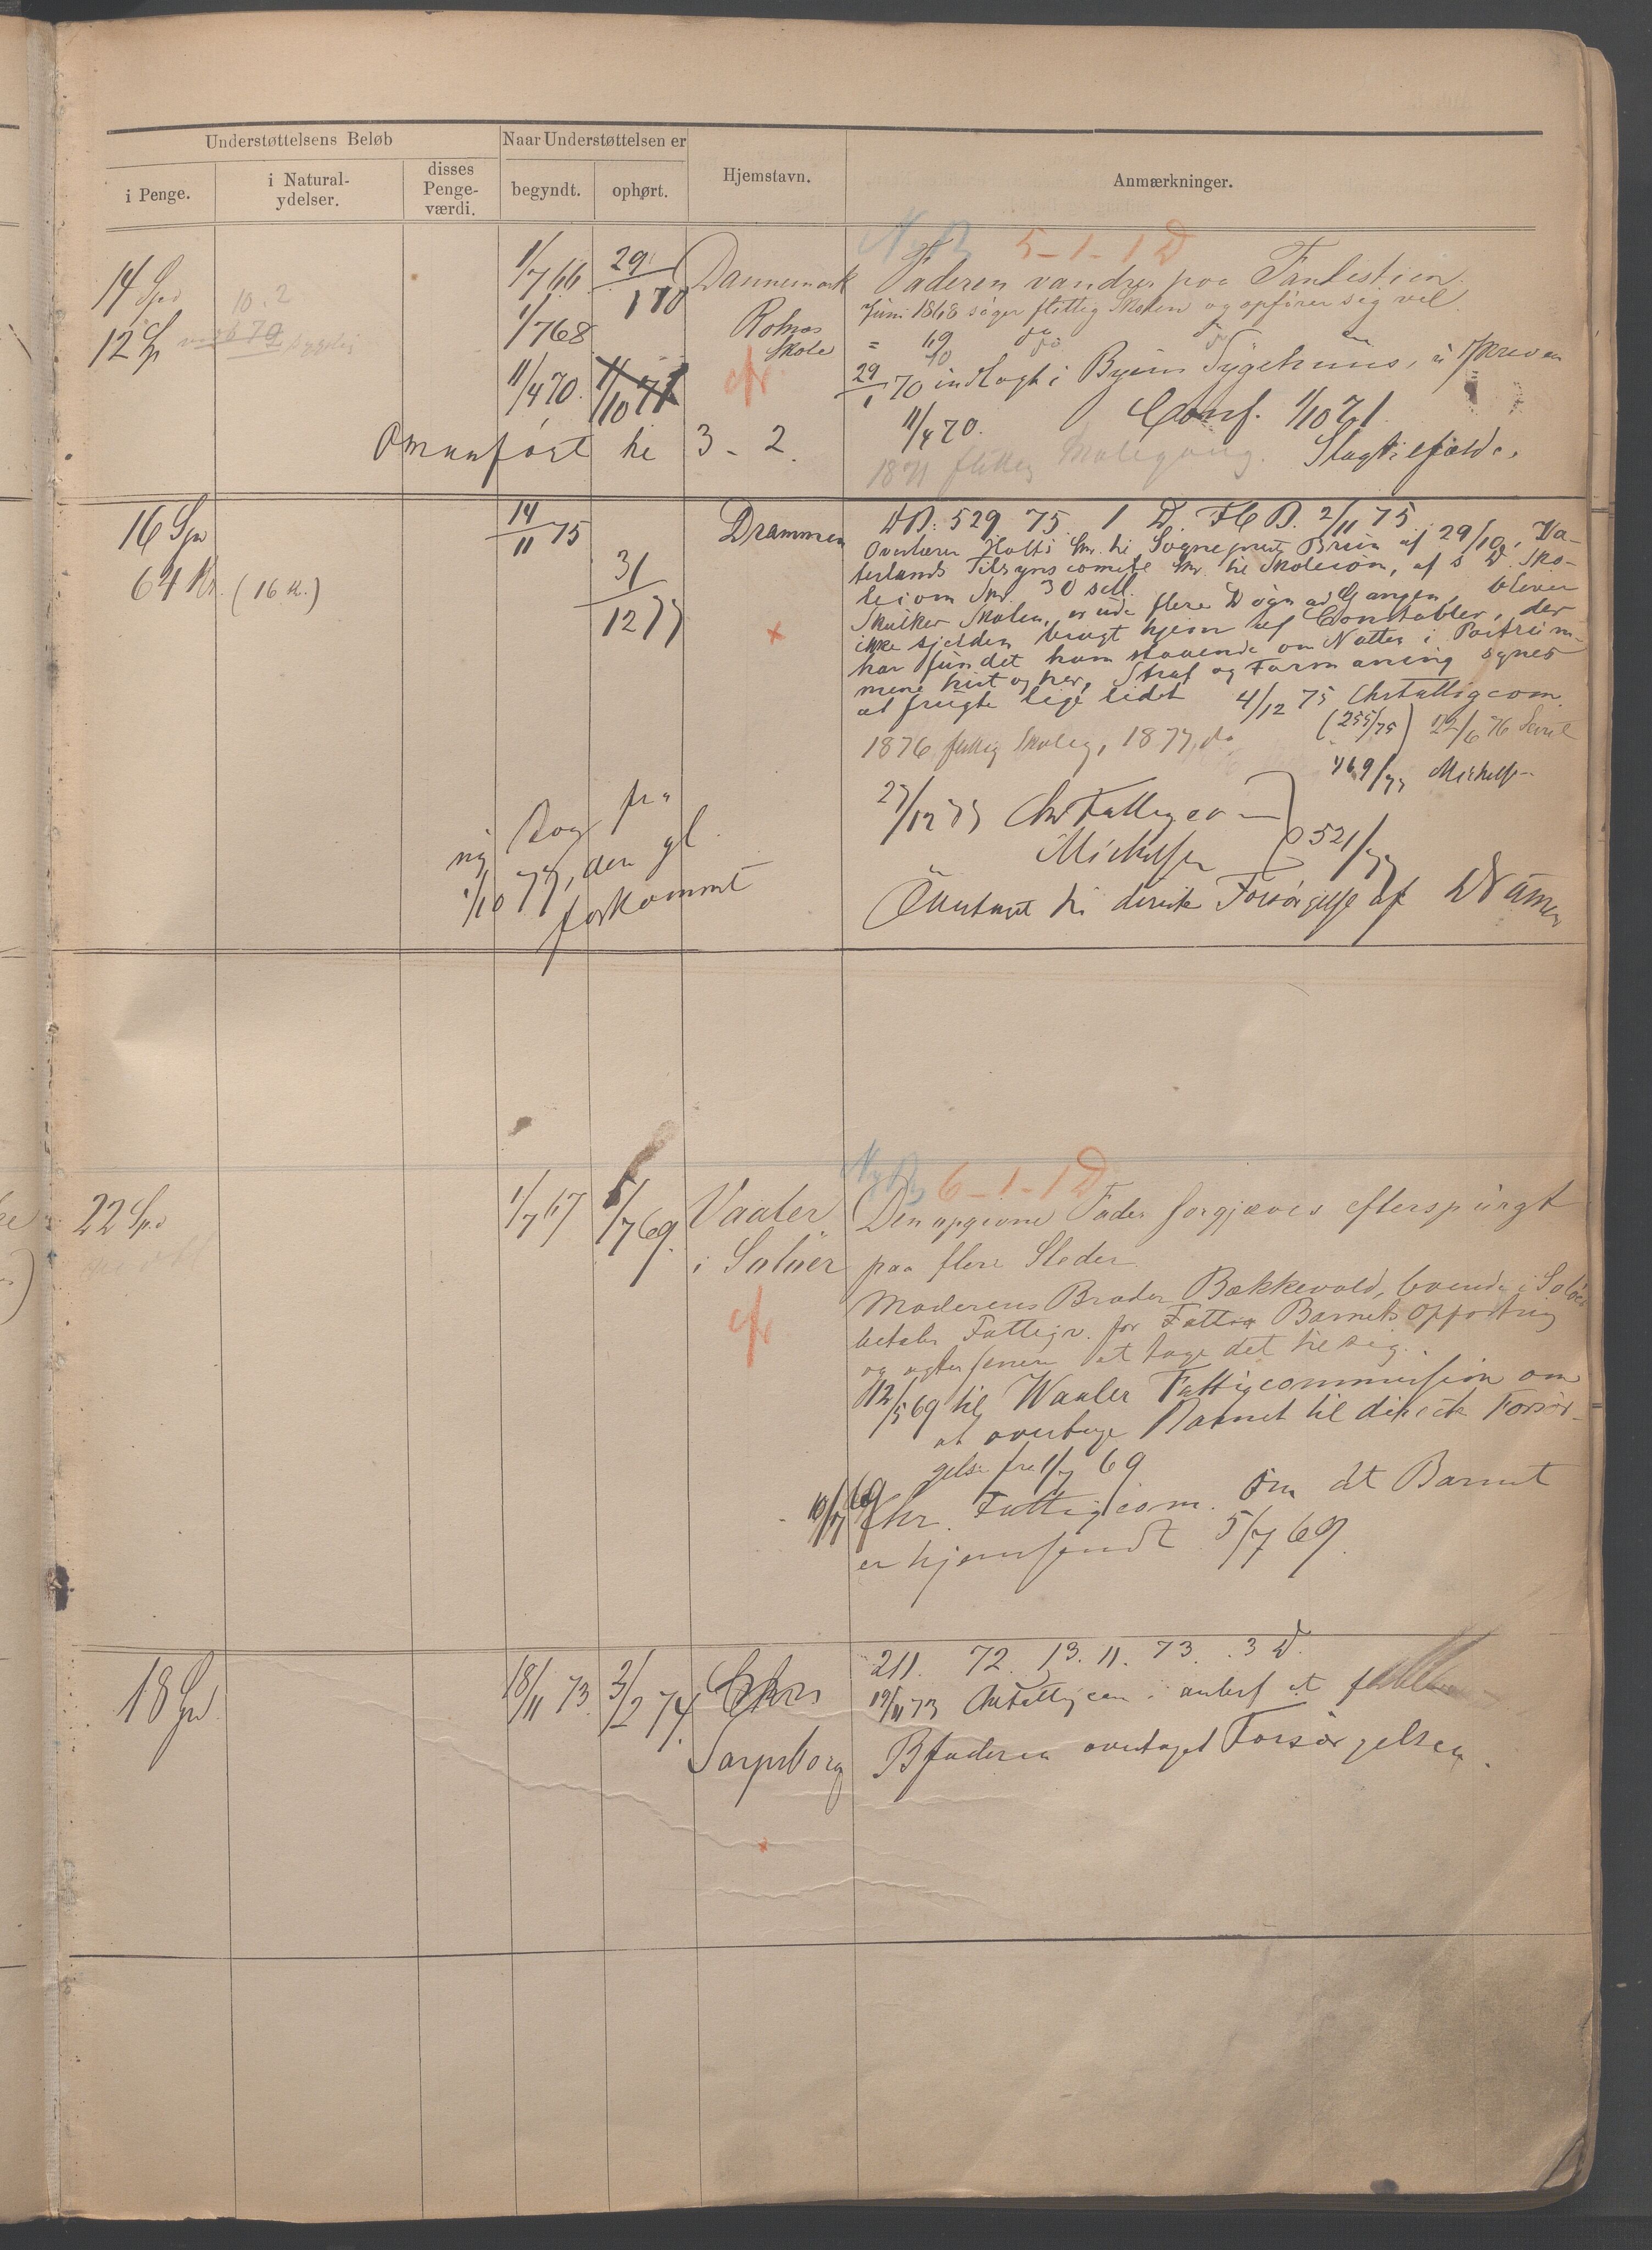 Understøttelsens Beløb
Naar Understøttelsen er
i Penge.
i Natural-
ydelser.
disses
Penge-
værdi.
begyndt.
ophørt.
Hjemstavn.
Anmærkninger.
5 - 1 - 1 D
14 Spd
1/7 66
29/1 70
Dannemark
Faderen vandrer paa Fantestien.
10.2
1/7 68
Juni 1868 søger flittig Skolen og opfører sig vel
12 Sp
Skole
= 69 do do
11/4 70.
1/10 71
29/1 70 indlagt i Byens Sygehuus, udskreven
11/4 70. Conf. 1/10 71.
Omanført til 3 - 2.
1871 flittig Skolegang.
16 Spd
14/11 75
Drammen
529 75. 1 D. 2/11 75
64 Kr. (16 K.)
31/12 77
Overlærer Holts Skr. til Sogneprest Bruun af 29/10, Va-
terlands Tilsynscomite Skr. til Skolecom, af s D. Sko-
lecom 30 sell.
Skulker Skolen, er ude flere Døgn ad Gangen, bliver
ikke sjelden bragt hjem af Constabler, der
har fundet ham sovende om Natten i Portrum-
mene hist og her, Straf og Formaning synes
at frugte lige lidet 4/12 75 Chr Fattigcom.
(255/75) 22/6 76
1876 flittig Skoleg, 1877, do
469/77 Mickelsen
ny Bog fra
1/10 77, den gl.
forkommet
27/12 77 Chr Fattigcom
Mickelsen
521/77
Overtaget til direkte Forsørgelse af Dramen
6 - 1 - 1 D
22 Spd
1/7 67
5/7 69.
Vaaler
i Soløer
Den opgivne Fader forgjæves efterspurgt
paa flere Steder.
Moderens Broder Bækkevold, boende i Soløer
betaler Fattigv. for Barnets Opfostring
og agter senere at tage det til sig.
12/5 69 til Waaler Fattigcommission om
at overtage Barnet til directe Forsør-
gelse fra 1/7 69
10/7 69 Chr. Fattigcom. om at Barnet
er hjemsendt 5/7 69.
18 Spd.
18/11 73
3/2 74.
Sarpsborg
211. 72. 13. 11. 73. 3 D.
19/11 73 Chr Fattigcom
Bfaderen overtaget Forsørgelsen.